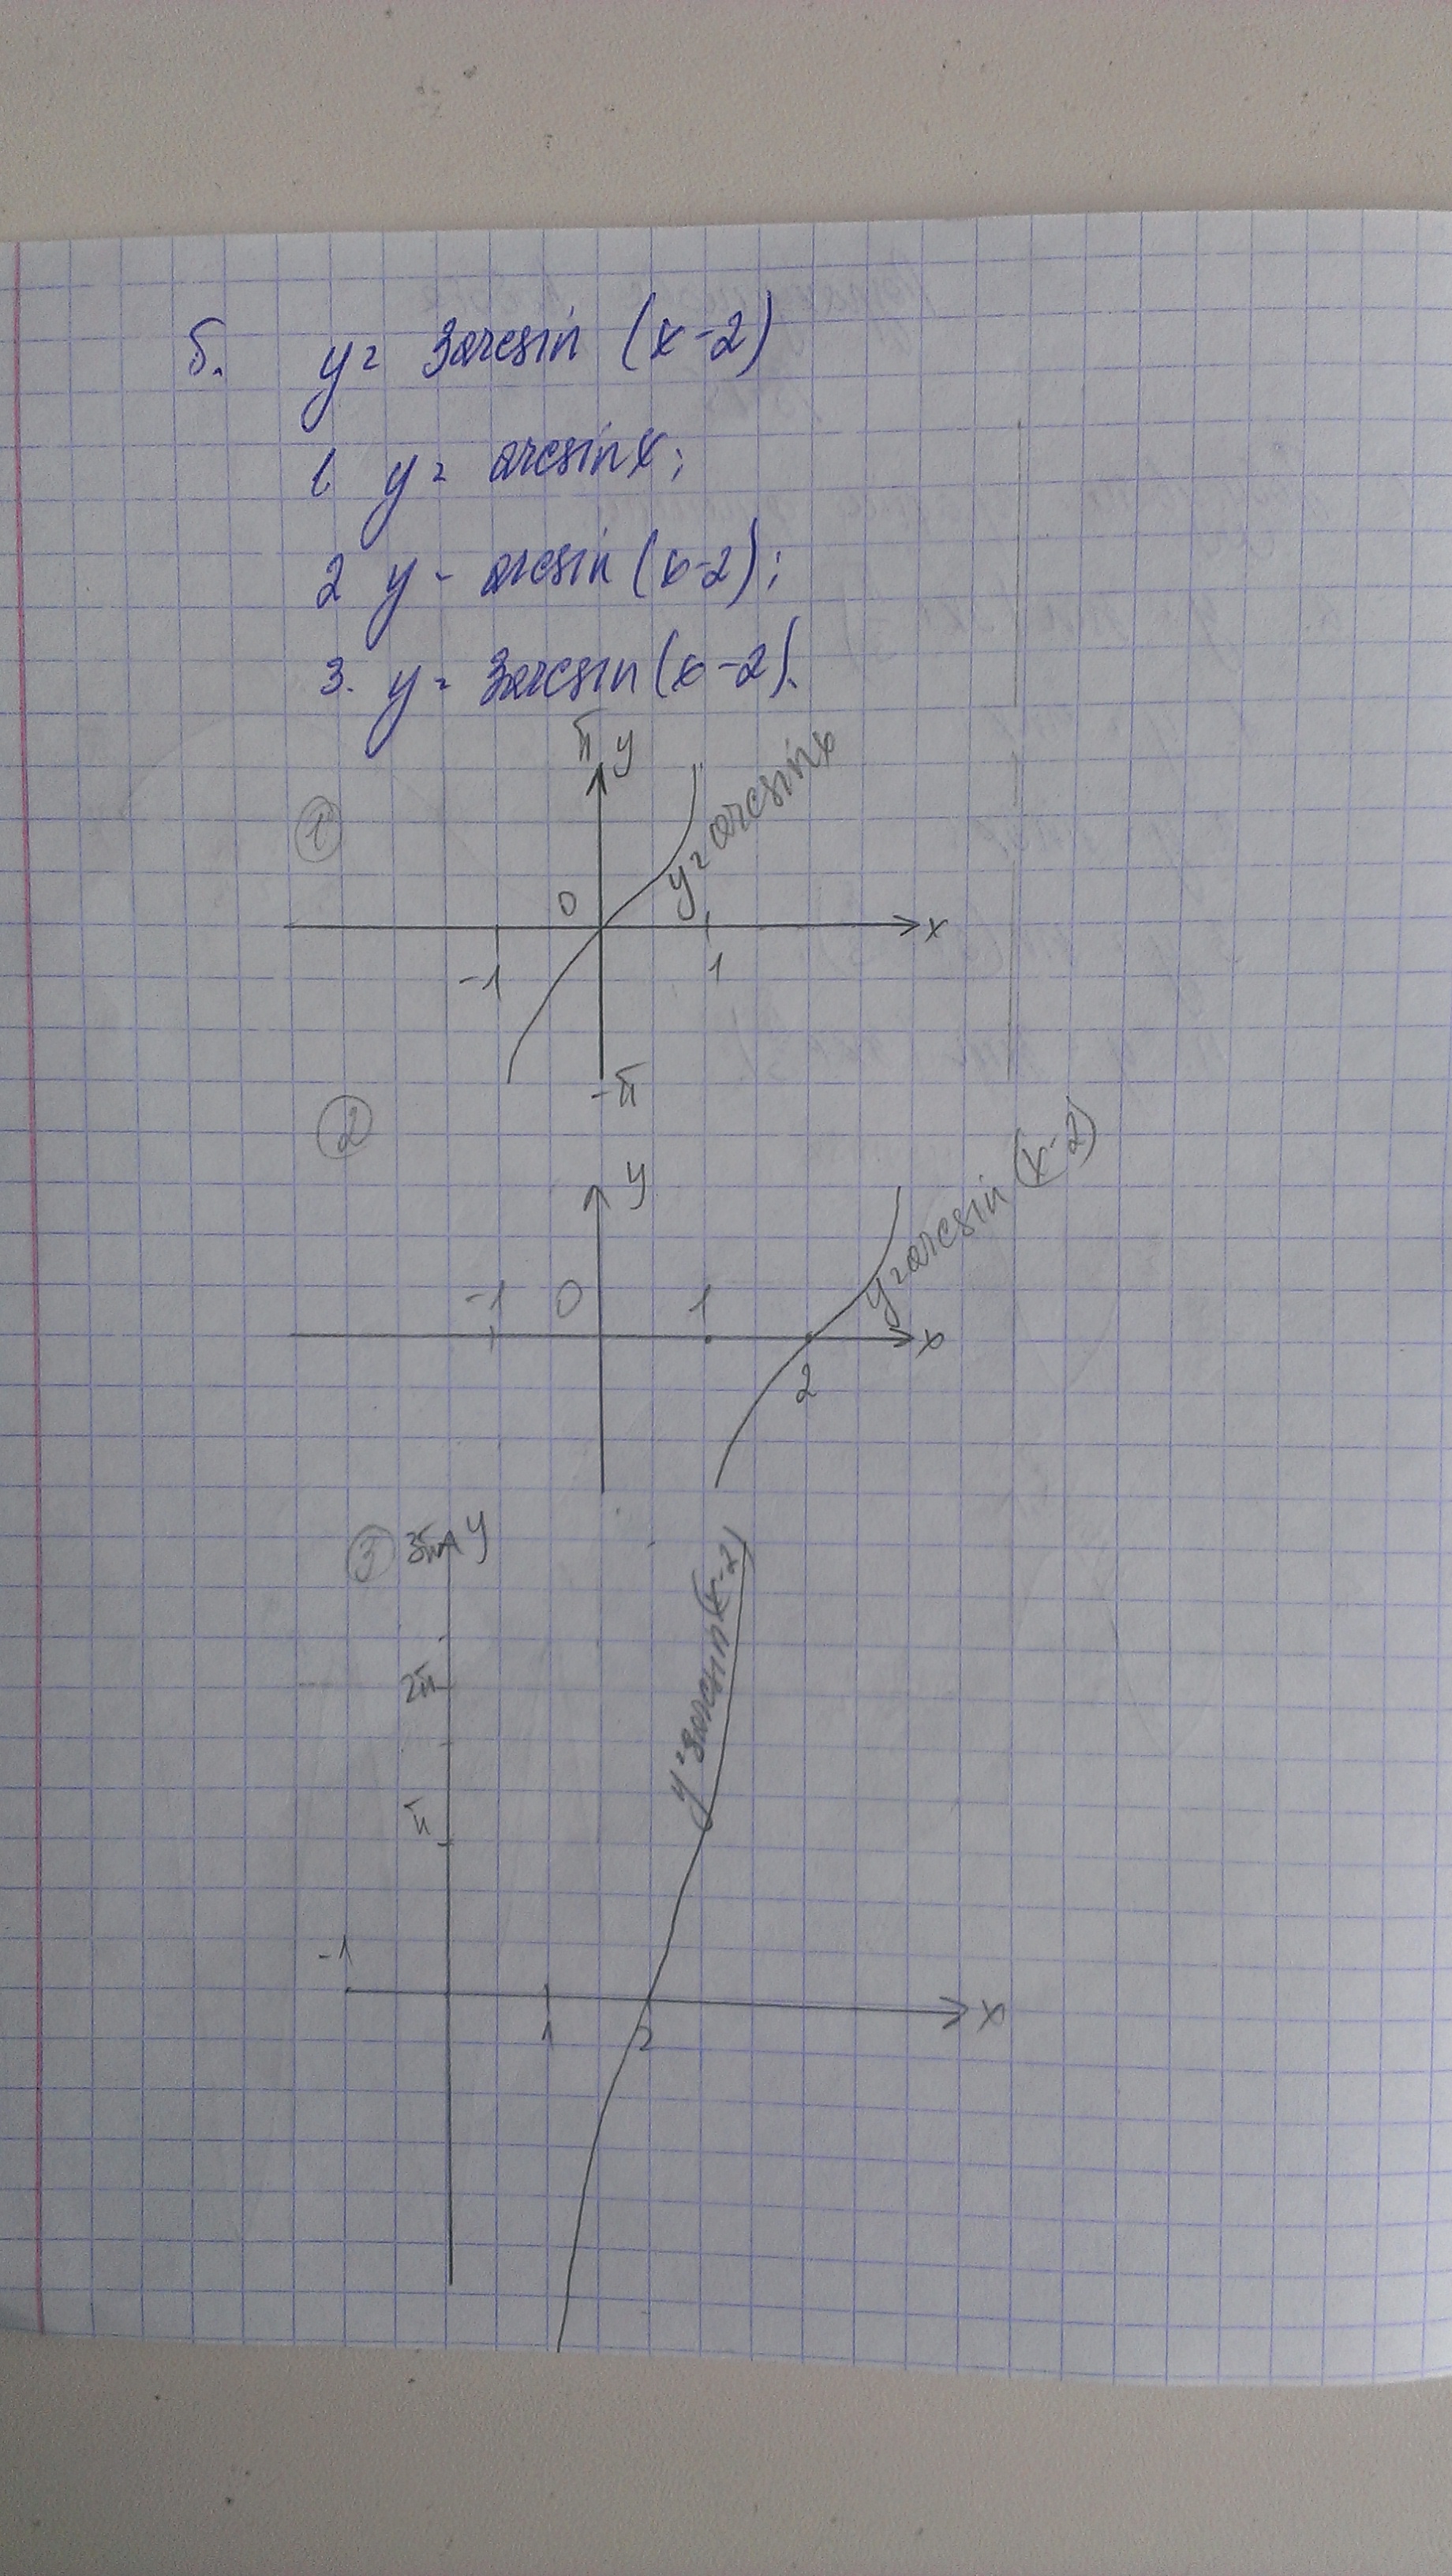 б. y = 3arcsin (x-2)
1 y = arcsinx;
2 y - arcsin (x-2);
3. y = 3arcsin (x-2).
π y
y=arcsinx
1
0
x
-1 1
-π
2
y
y=arcsin (x-2)
-1 0 1
x
2
3 3π y
y=3arcsin(x-2)
2π
π
-1
x
1 2